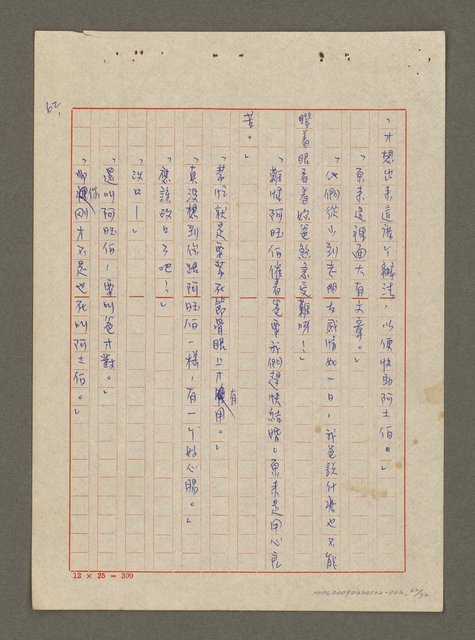 62.
「才想出來這個辦法,以便快助阿土伯。」
「原來這裡面大有文章。」
「他們從小到老朋友感情如一日,我爸說什麼也不能
瞪着眼看着好爸煞哀受難呀!」
「難怪阿旺伯催着要我們趕快結婚。原來是用心良
苦。」
「幫忙就是要幫在節骨眼上才有用。」
「真沒想到你跟阿旺伯一樣,有一個好心腸。」
「應該改口了吧!」
「改口—」
「還叫阿旺伯,要叫爸才對。」
「你剛才不是也在叫阿土伯。」
12 × 25 = 300
NMTL20090220102-002, 62/72